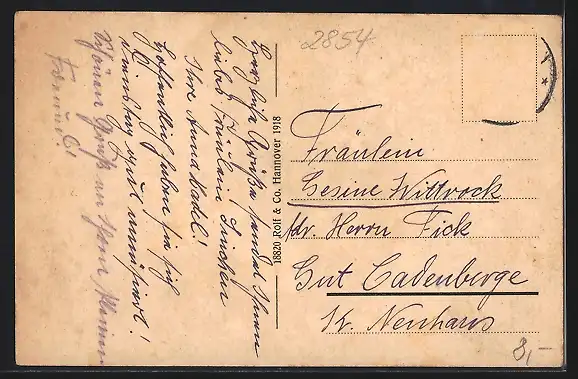 2854
Herzliche Grüße sendet Ihnen
liebes Fräulein Sinchen
Ihre Anna Kadel!
Hoffentlich haben sie sich
Dienstag gut amüsiert!
Schönen Gruß an Ihren kleinen
Freund!
18820 Rolf & Co, Hannover 1918
Fräulein
Gesine Wittrock
Adr. Herrn Fick
Gut Cadenberge
Kr. Neuhaus
8,-